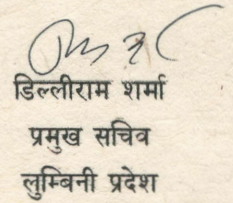 डिल्लीराम शर्मा
प्रमुख सचिव
लुम्बिनी प्रदेश